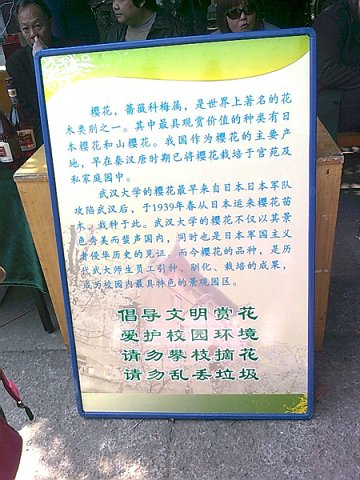 樱花，蔷薇科梅属，是世界上著名的花
木类别之一。其中最具观赏价值的种类有日
本樱花和山樱花。我国作为樱花的主要产
地，早在秦汉唐时期已将樱花栽培于宫苑及
私家庭园中。
武汉大学的樱花最早来自日本日本军队
攻陷武汉后，于1939年春从日本运来樱花苗
木，栽种于此。武汉大学的樱花不仅以其景
色秀美而蜚声国内，同时也是日本军国主义
者侵华历史的见证。而今樱花的品种，是历
代武大师生员工引种、驯化、栽培的成果，
成为校园内最具特色的景观园区。
倡导文明赏花
爱护校园环境
请勿攀枝摘花
请勿乱丢垃圾